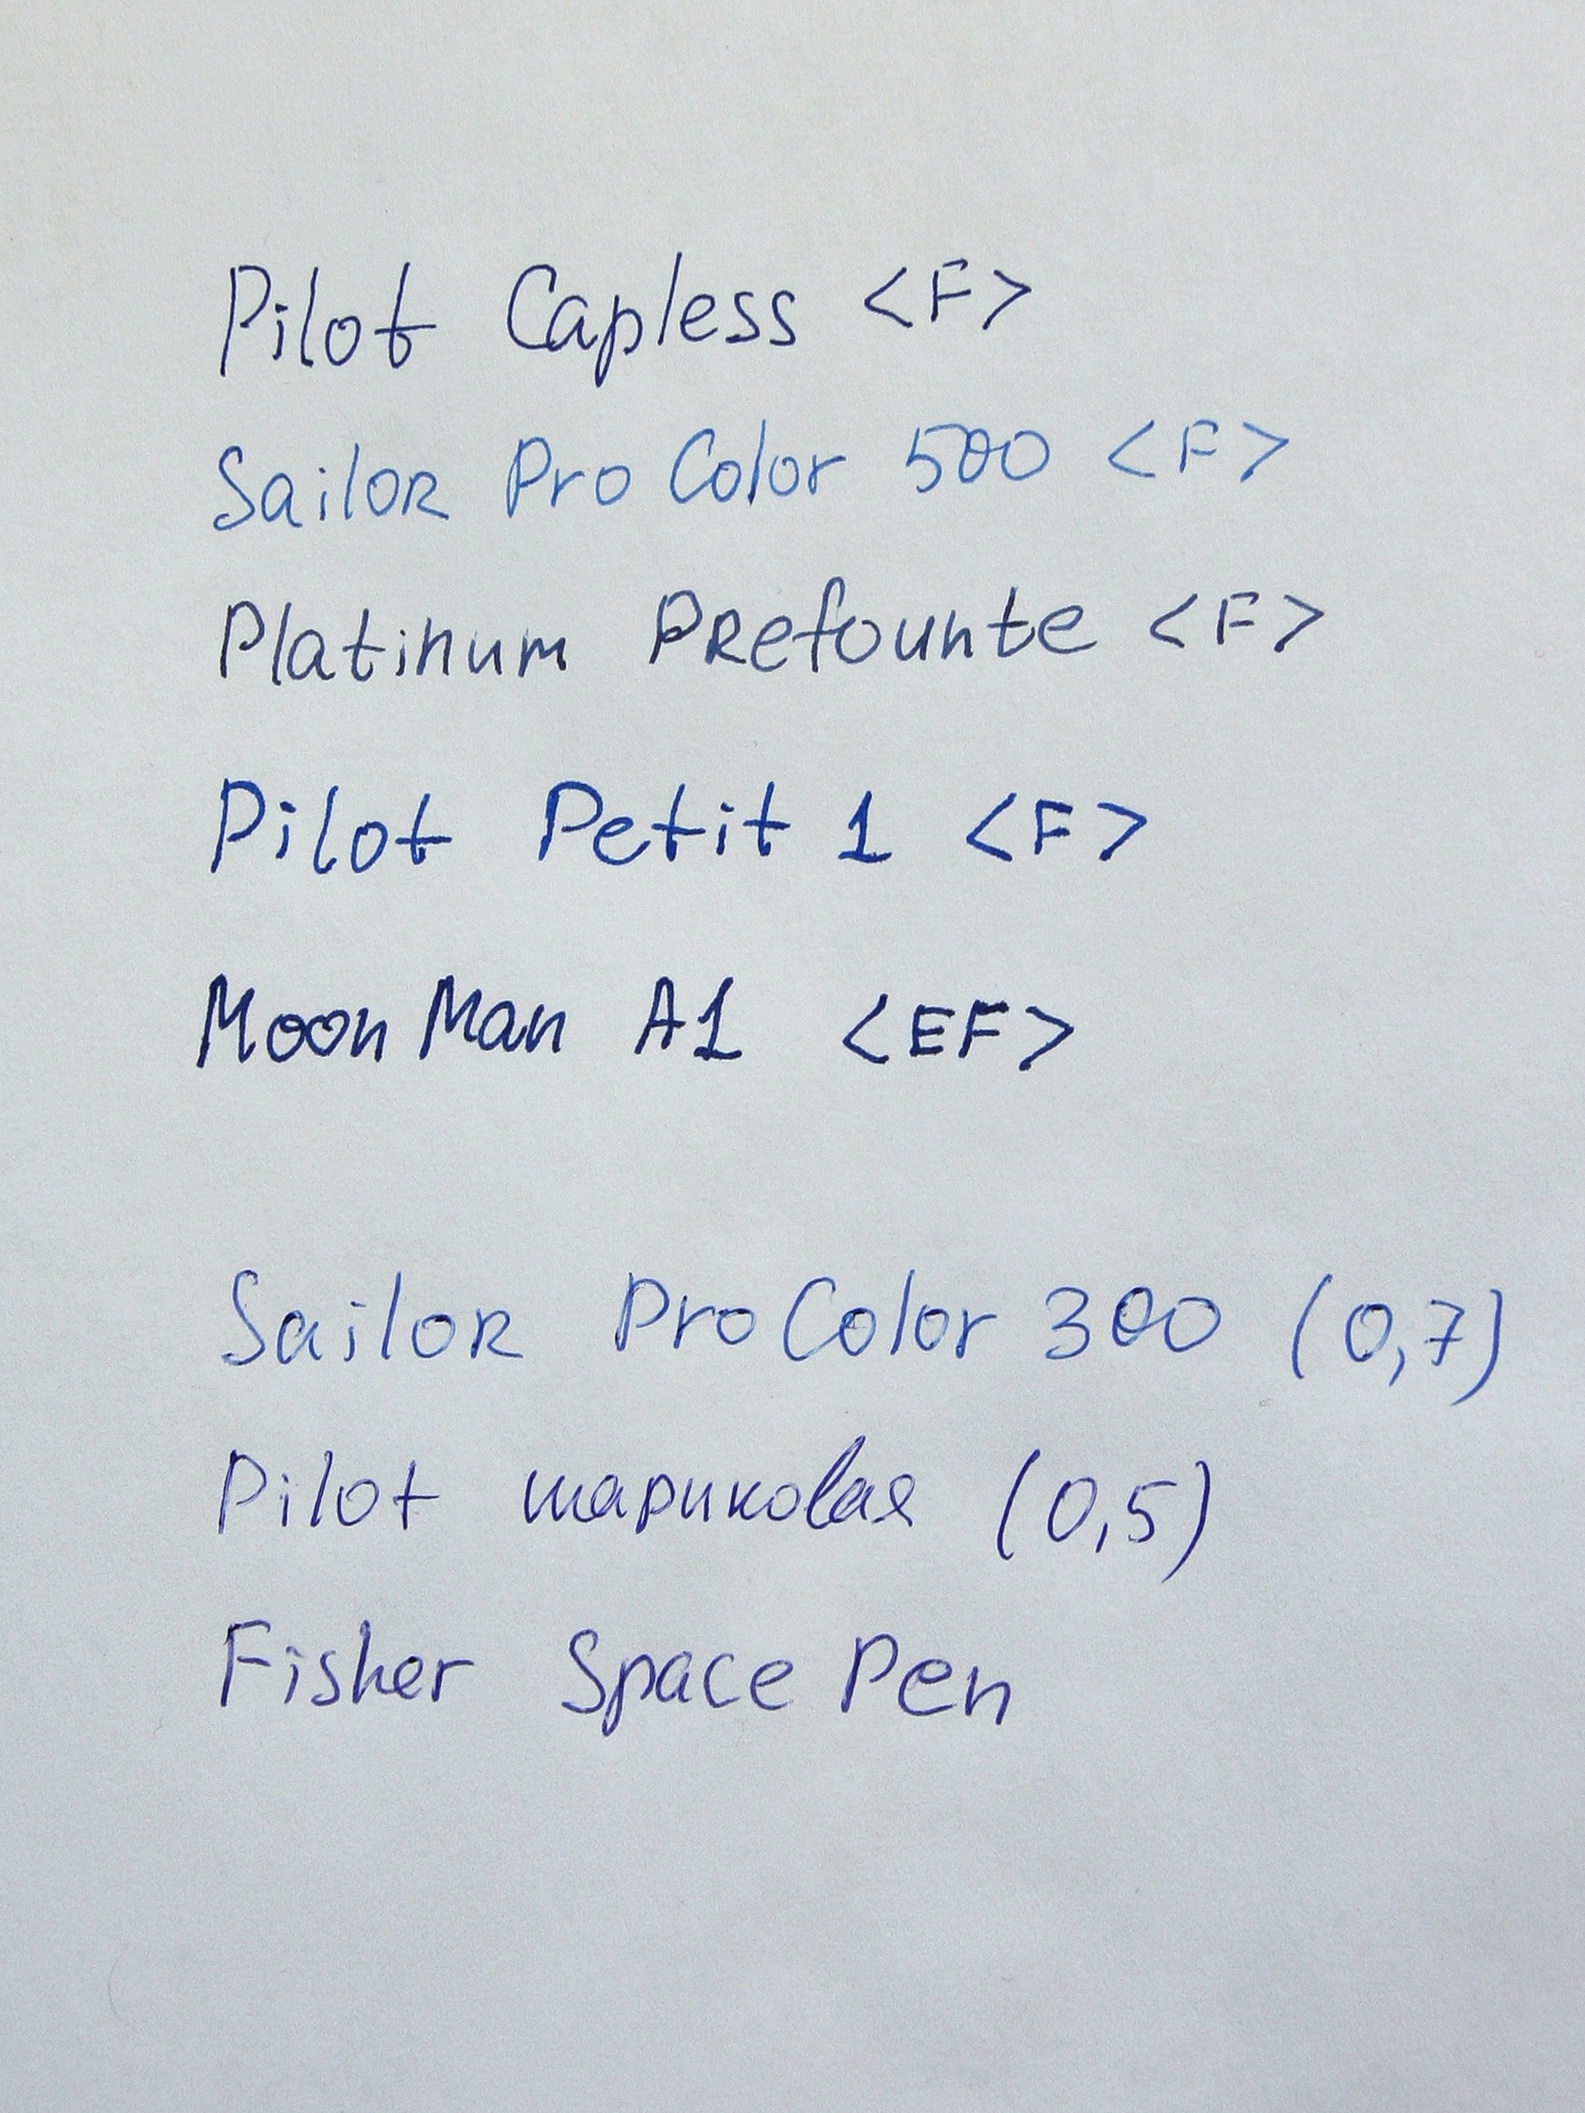 Pilot Capless <F>
Sailor Pro Color 500 <F>
Platinum Prefounte <F>
Pilot Petit 1 <F>
Moon Man A1 <EF>
Sailor Pro Color 300 (0,7)
Pilot шариковая (0,5)
Fisher Space Pen